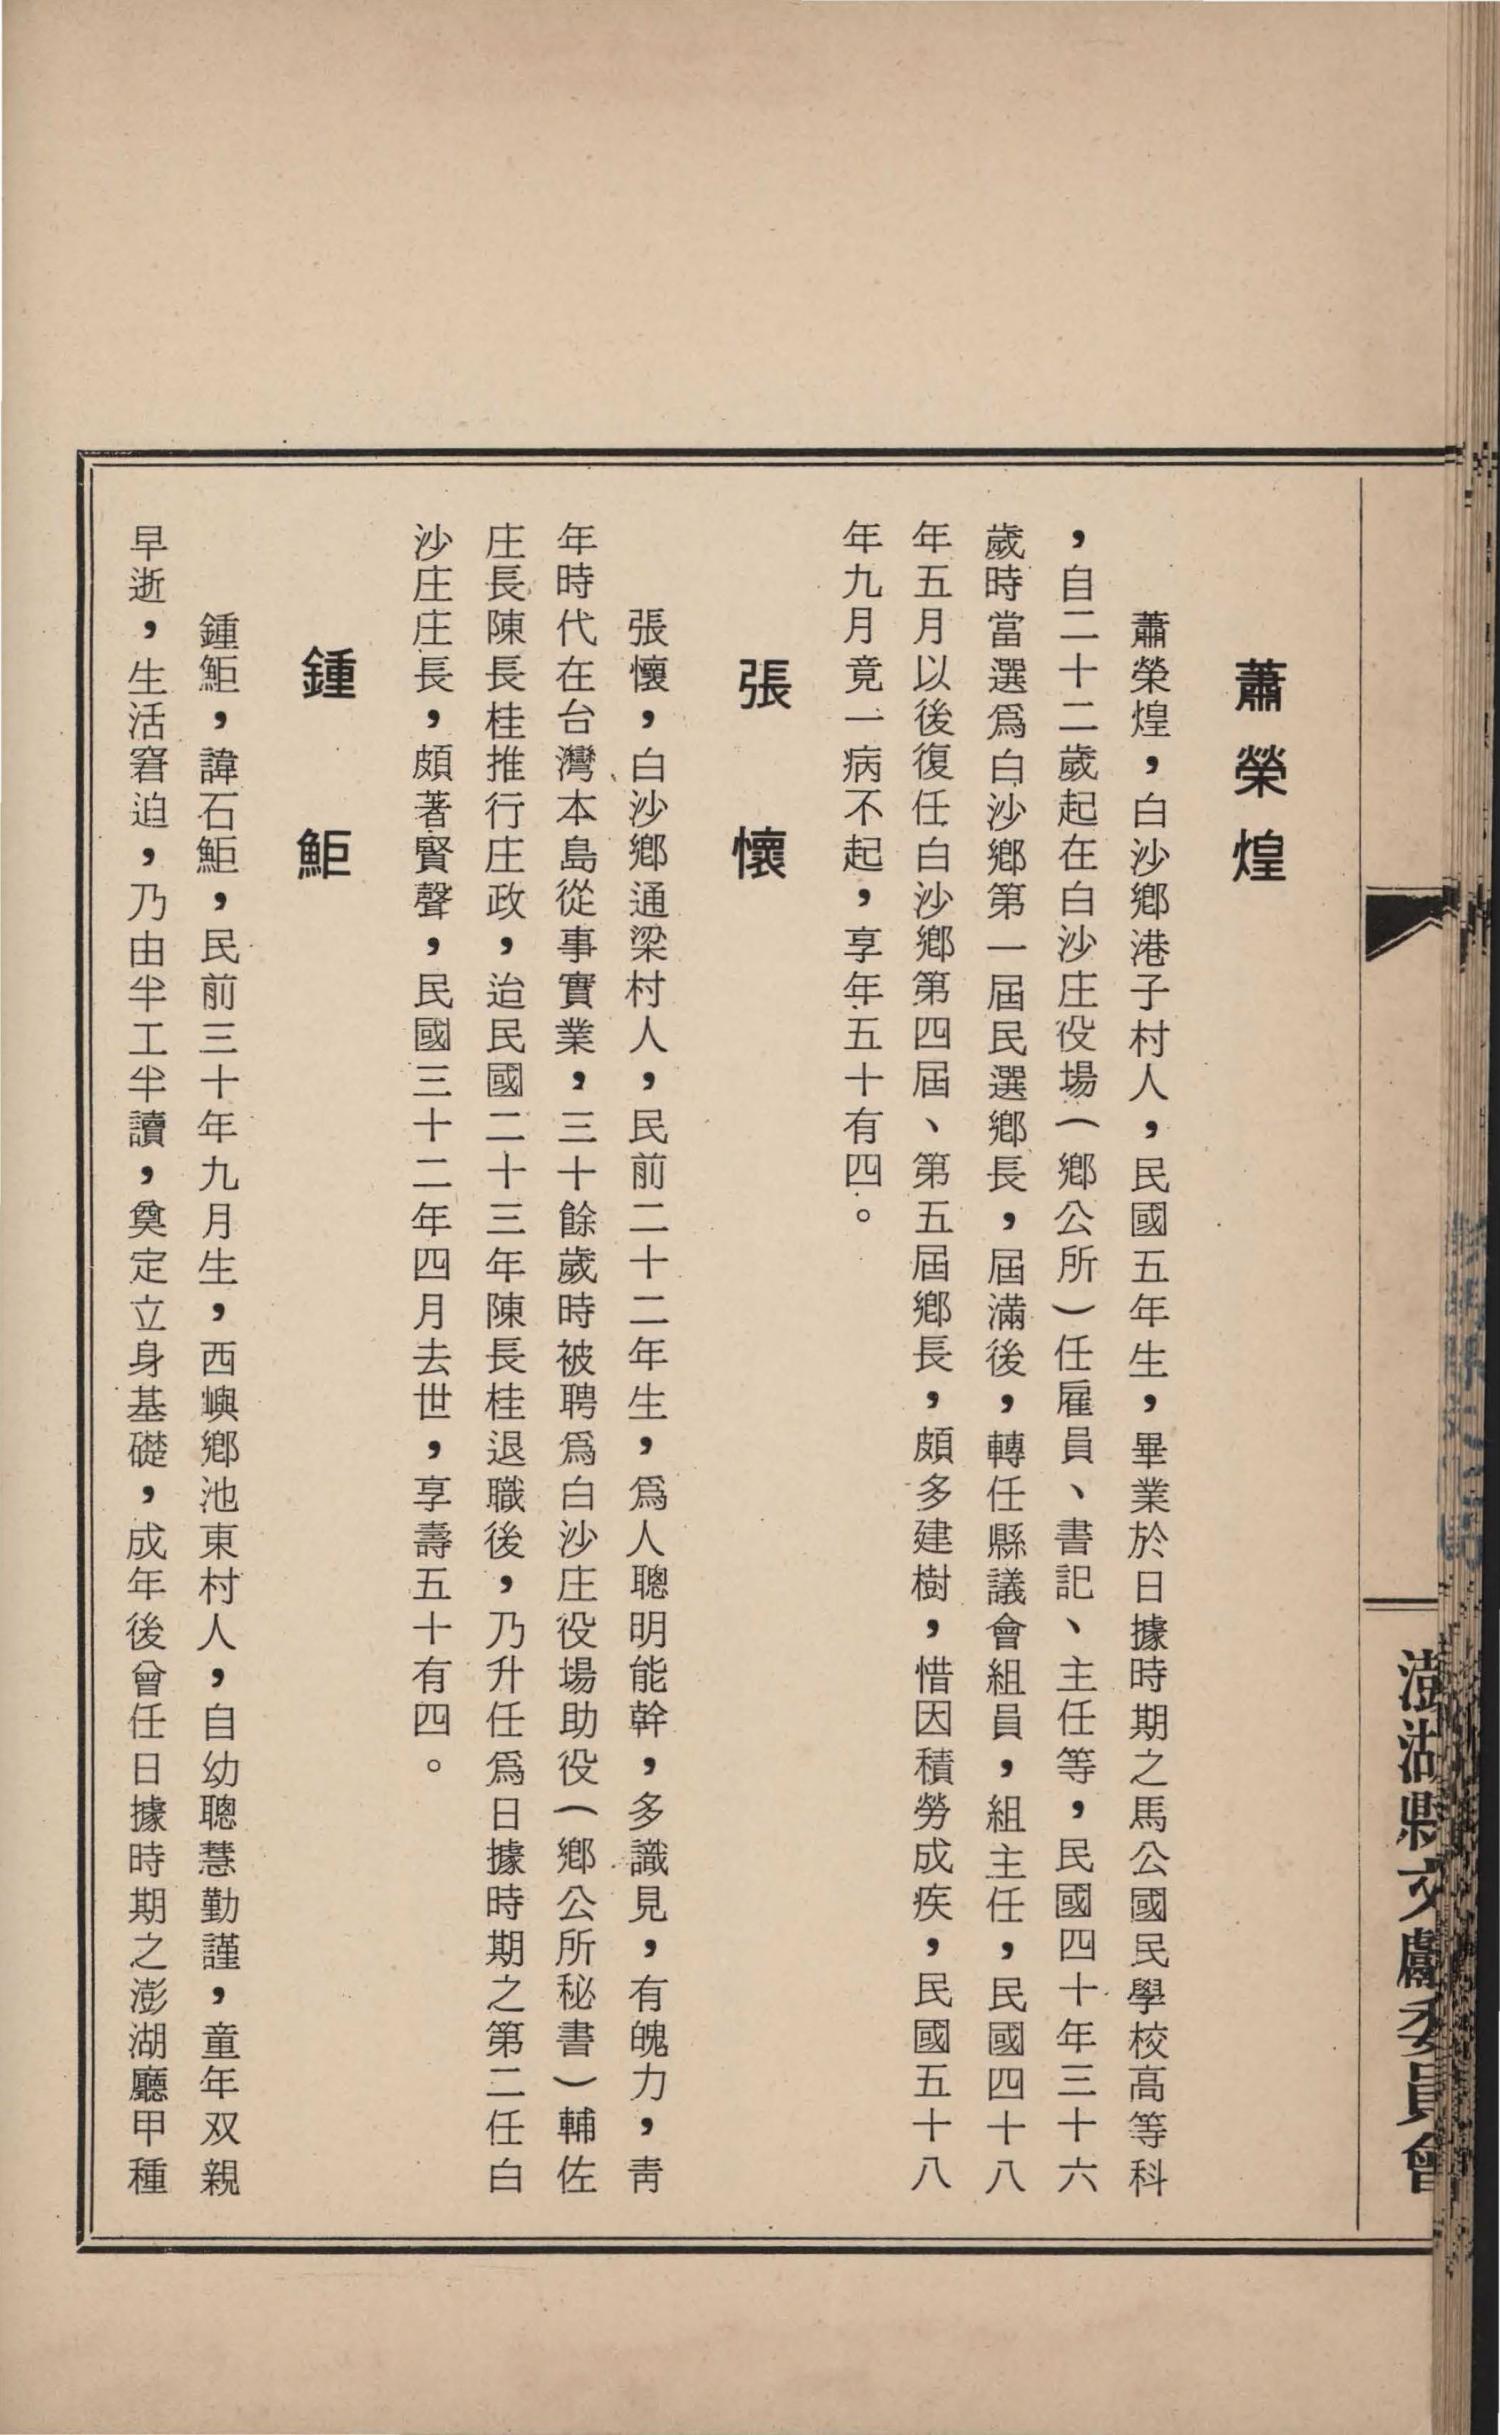 澎湖縣文獻委員會
蕭榮煌
蕭榮煌，白沙鄉港子村人，民國五年生，畢業於日據時期之馬公國民學校高等科
，自二十二歲起在白沙庄役場（鄉公所）任雇員、書記、主任等，民國四十年三十六
歲時當選爲白沙鄉第一屆民選鄉長，屆滿後，轉任縣議會組員，組主任，民國四十八
年五月以後復任白沙鄉第四屆、第五屆鄉長，頗多建樹，惜因積勞成疾，民國五十八
年九月竟一病不起，享年五十有四。
張懷
張懷，白沙鄉通梁村人，民前二十二年生，爲人聰明能幹，多識見，有魄力，靑
年時代在台灣本島從事實業，三十餘歲時被聘爲白沙庄役場助役（鄉公所秘書）輔佐
庄長陳長桂推行庄政，迨民國二十三年陳長桂退職後，乃升任爲日據時期之第二任白
沙庄庄長，頗著賢聲，民國三十二年四月去世，享壽五十有四。
鍾鮔
鍾鮔，諱石鮔，民前三十年九月生，西嶼鄉池東村人，自幼聰慧勤謹，童年双親
早逝，生活窘迫，乃由半工半讀，奠定立身基礎，成年後曾任日據時期之澎湖廳甲種